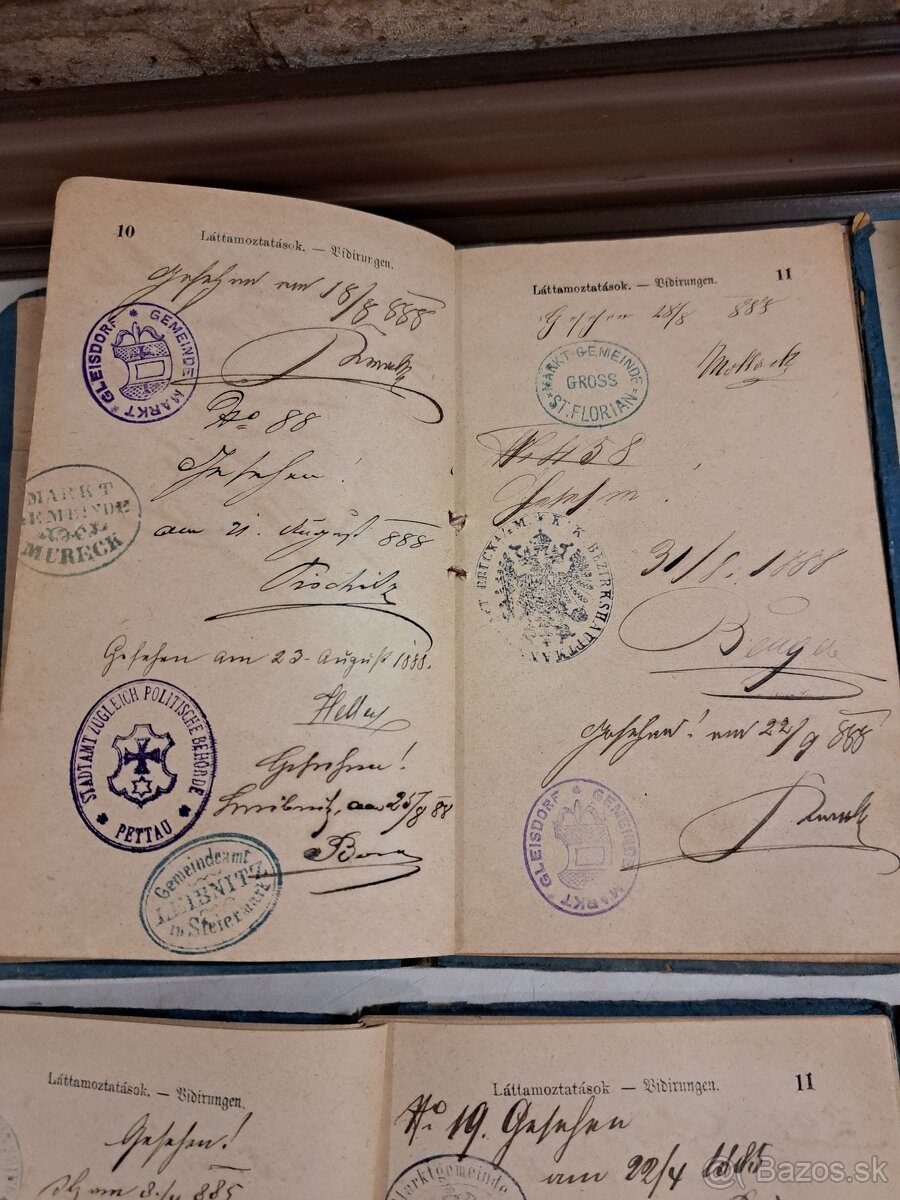 10
Láttamoztatások. — Vidirungen.
Gesehen am 18/8 888
GEMEINDE MARKT GLEISDORF
No 88
Gesehen!
MARKT
GEMEINDE
MURECK
am 21. August 888
Gesehen am 23. August 1888.
STADTAMT ZUGLEICH POLITISCHE BEHÖRDE
PETTAU
Gesehen!
Leibnitz, am 25/8 88
Gemeindeamt
LEIBNITZ
in Steiermark
11
Láttamoztatások. — Vidirungen.
Gesehen 28/8 888
MARKT-GEMEINDE
GROSS
ST. FLORIAN
No 458
K.K. BEZIRKSHAUPTMAN
31/8. 1888
Gesehen! am 22/9 888
GEMEINDE MARKT GLEISDORF
Láttamoztatások. — Vidirungen.
Gesehen!
885
Láttamoztatások — Vidirungen.
11
No. 19. Gesehen
am 22/4 1885
Marktgemeinde
Bazos.sk